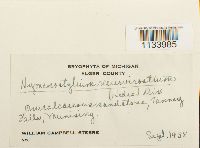 1133985
BRYOPHYTA OF MICHIGAN
ALGER COUNTY
Hymenostylium recurvirostrum
(Hedw.) Dix.
On calcareous sandstone, Tannery
Falls, Munising.
WILLIAM CAMPBELL STEERE
Sept. 1935